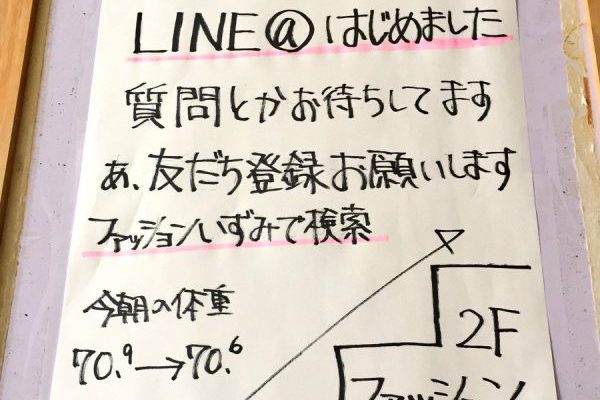 LINE@はじめました
質問とかお待ちしてます
あ、友だち登録お願いします
ファッションいずみで検索
今朝の体重
70.9→70.6
2F
ファッション